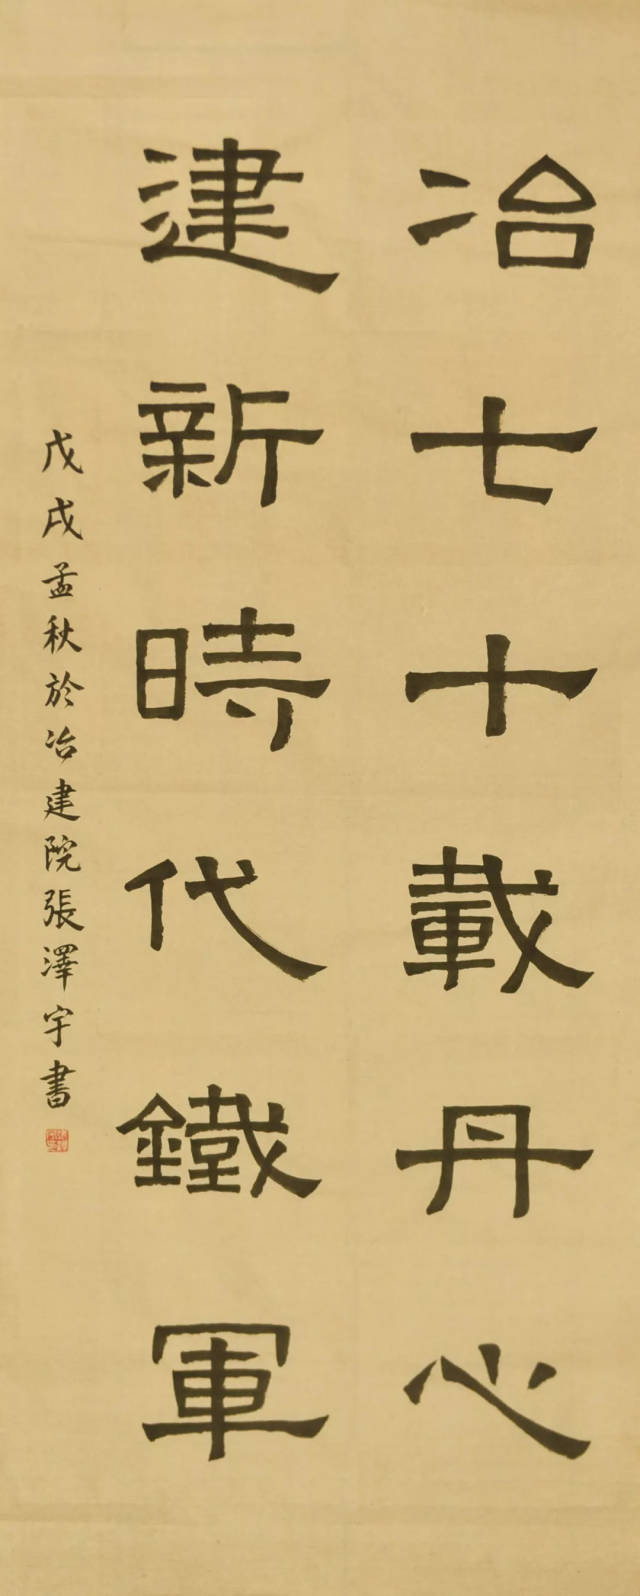 冶七十載丹心
建新時代鐵軍
戊戌孟秋於冶建院張澤宇書